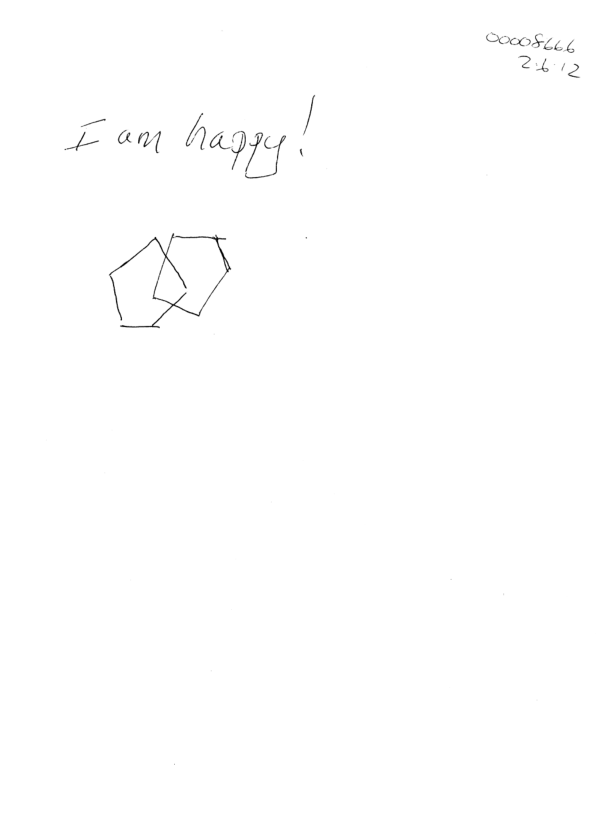 00008666
2.6.12
I am happy!